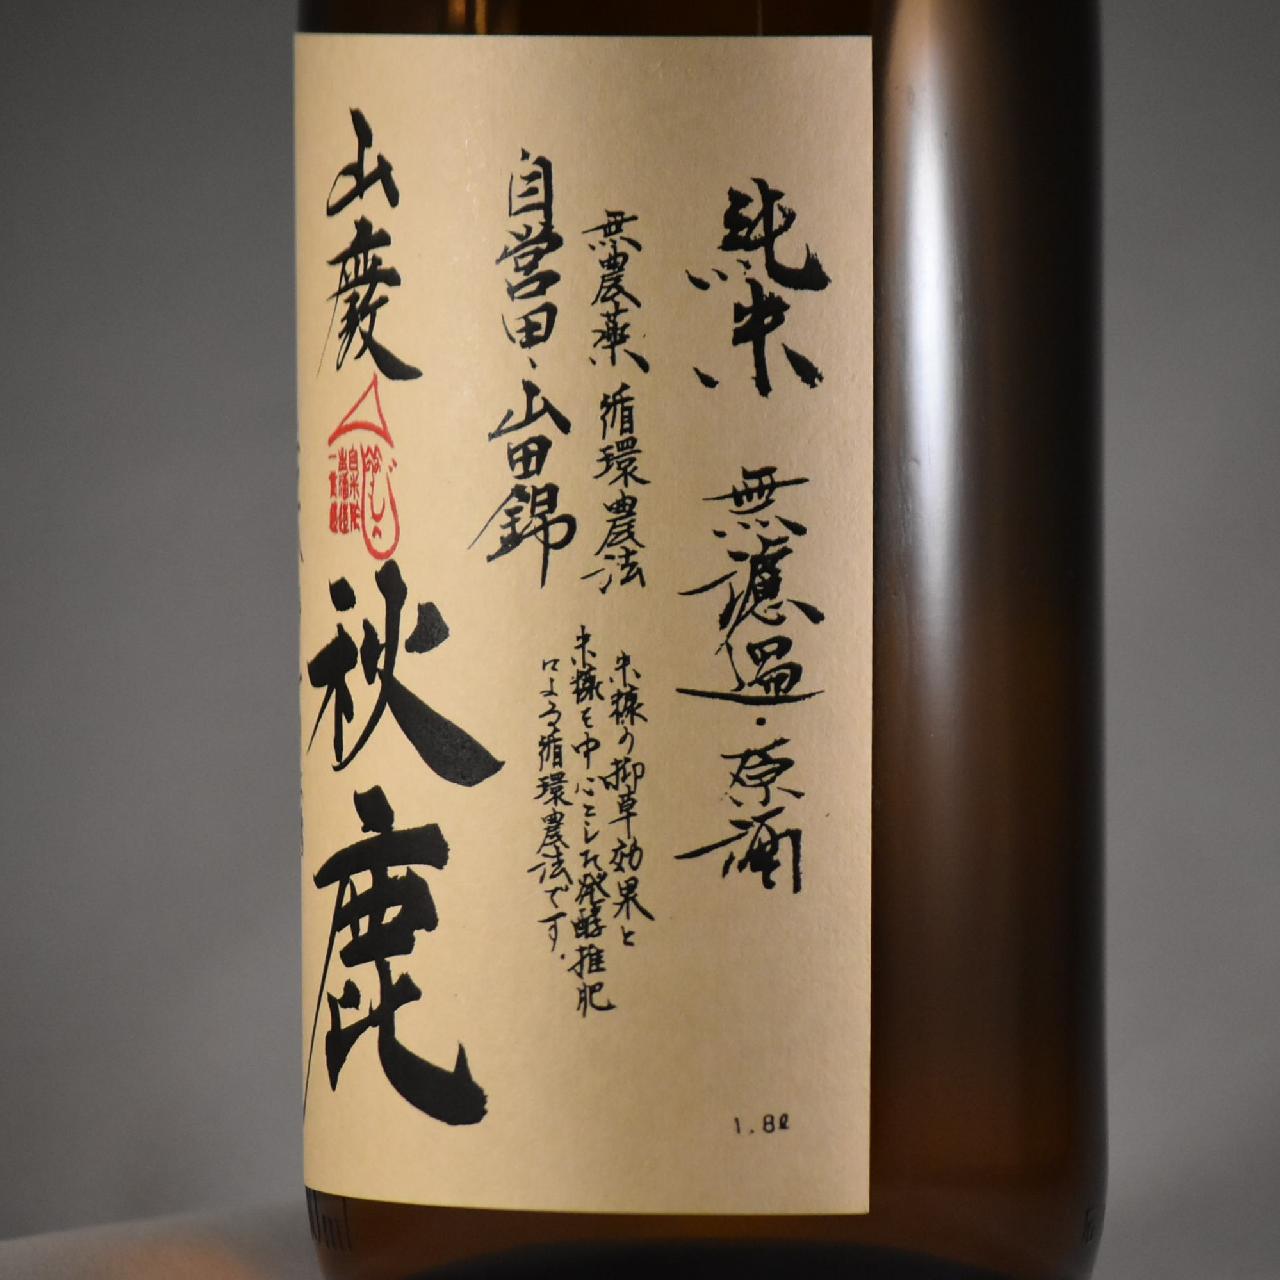 純米 無濾過・原酒
無農薬 循環農法
米糠の抑草効果と
米糠を中心とした発酵推肥
による循環農法です.
自営田、山田錦
山廃
秋鹿
1.8ℓ